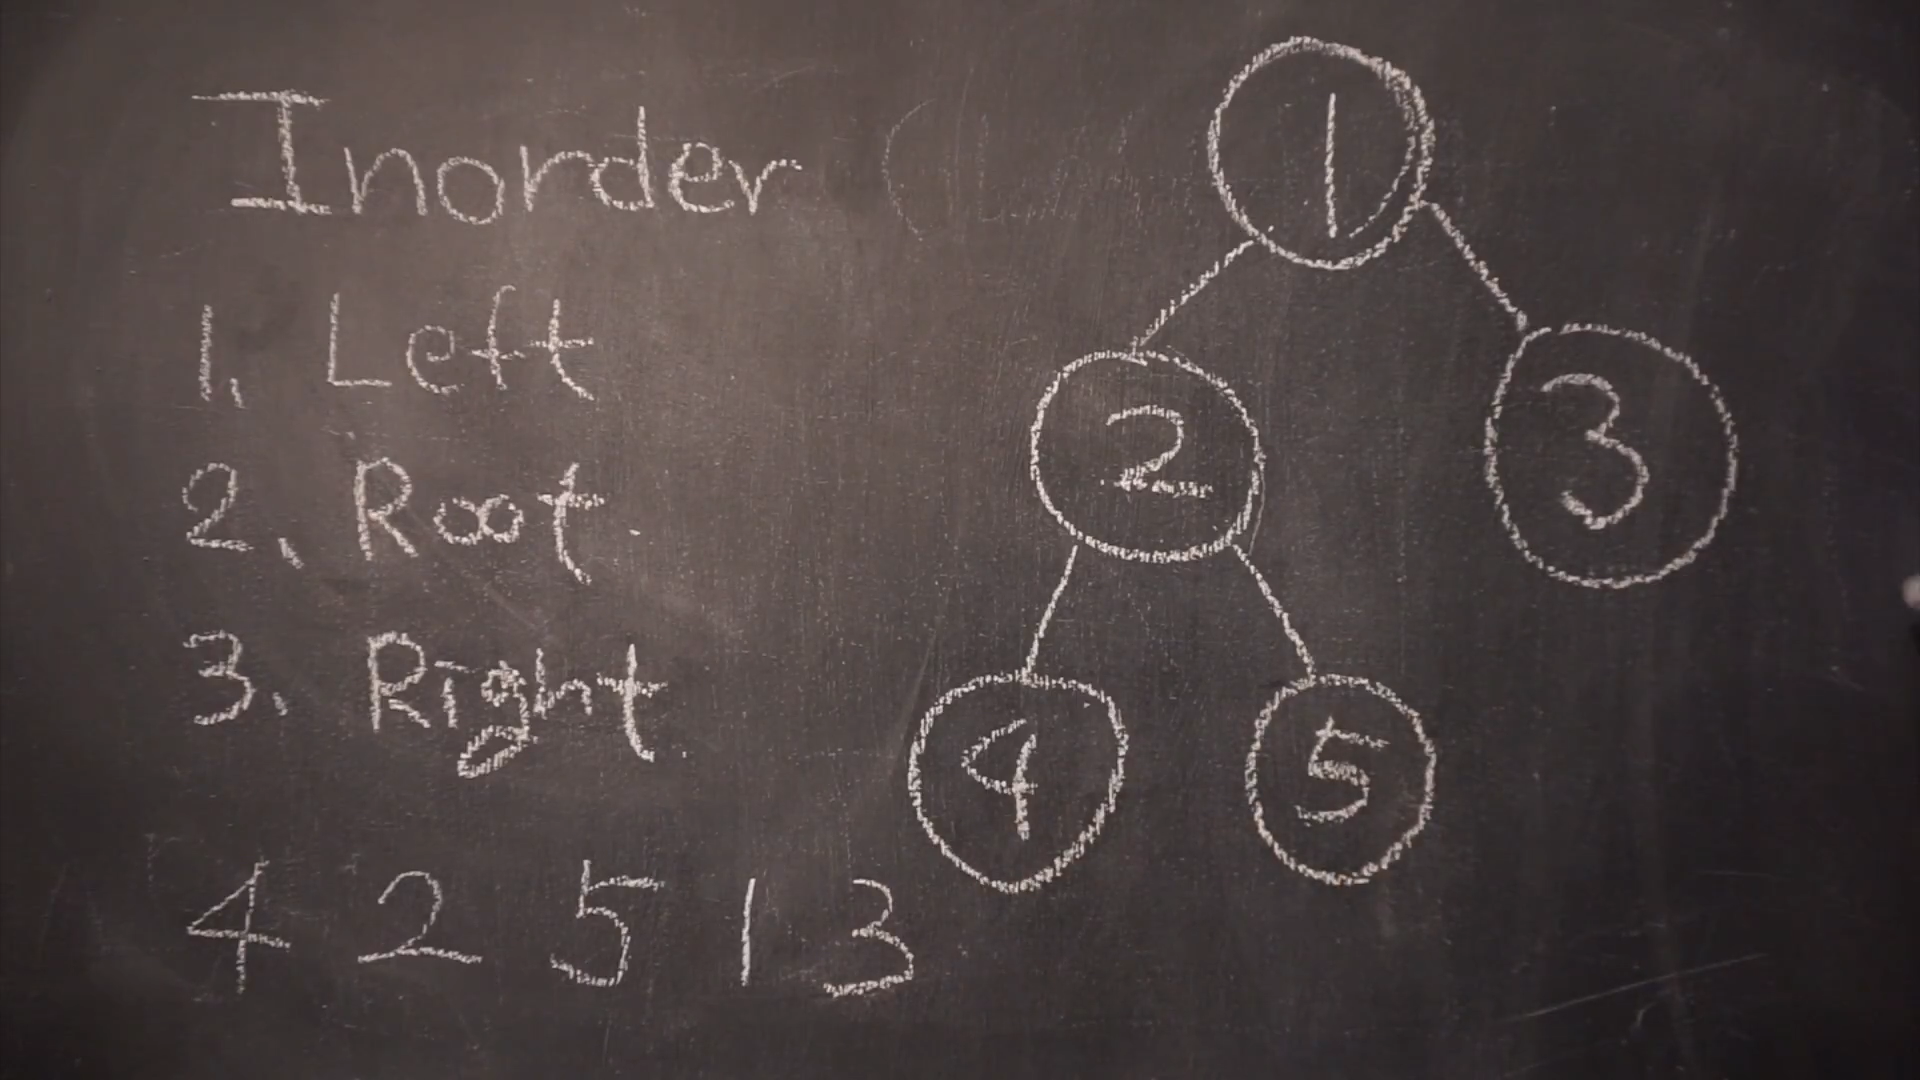 Inorder
1. Left
2. Root
3. Right
4 2 5 1 3
1
2
3
4
5